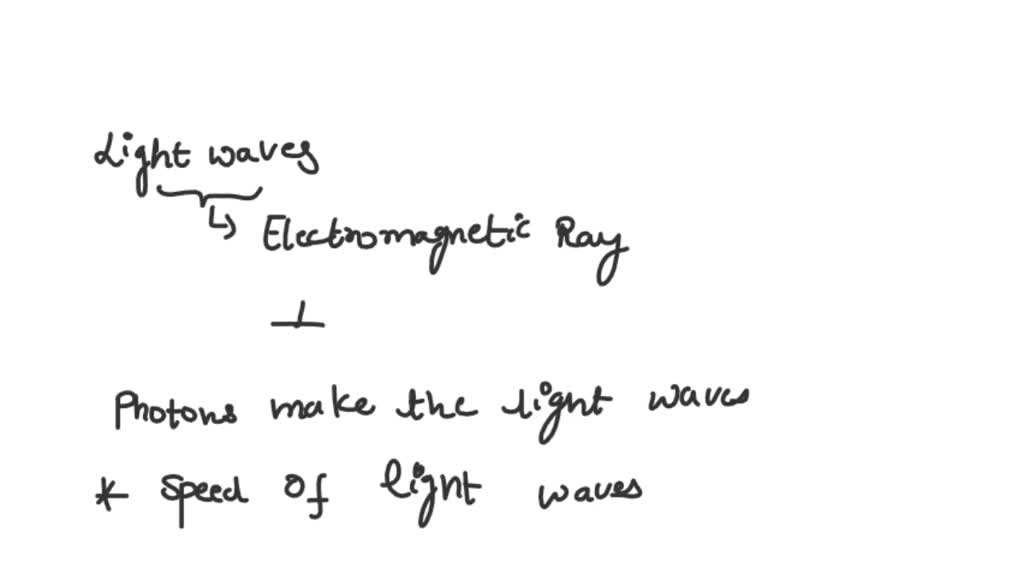 Light waves
↳ Electromagnetic Ray
⊥
Photons make the light waves
* Speed of light waves